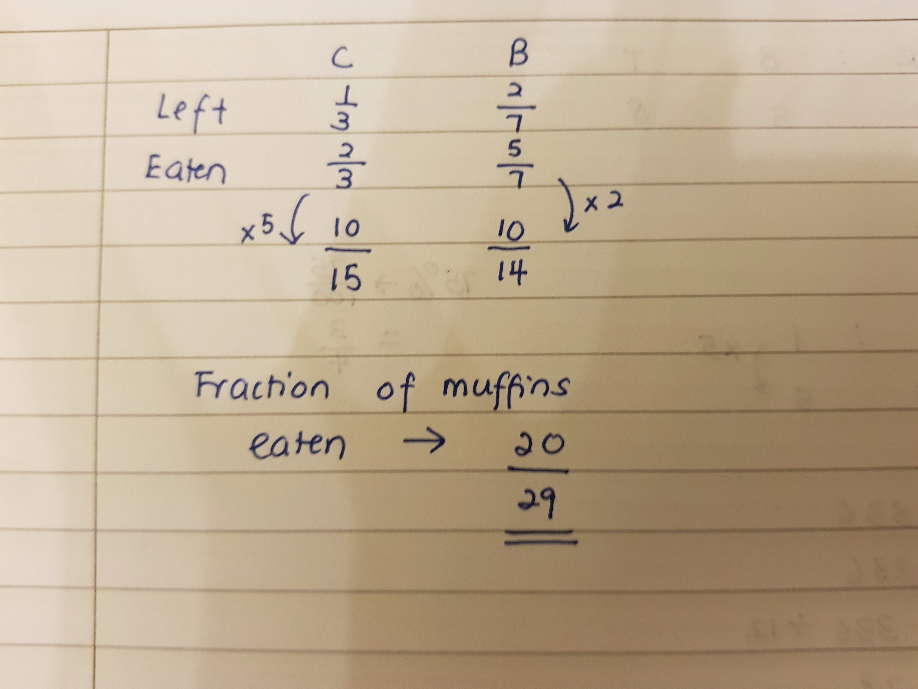 C B
Left 1/3 2/7
Eaten 2/3 5/7
×5 10/15 10/14 ×2
Fraction of muffins
eaten → 20/29